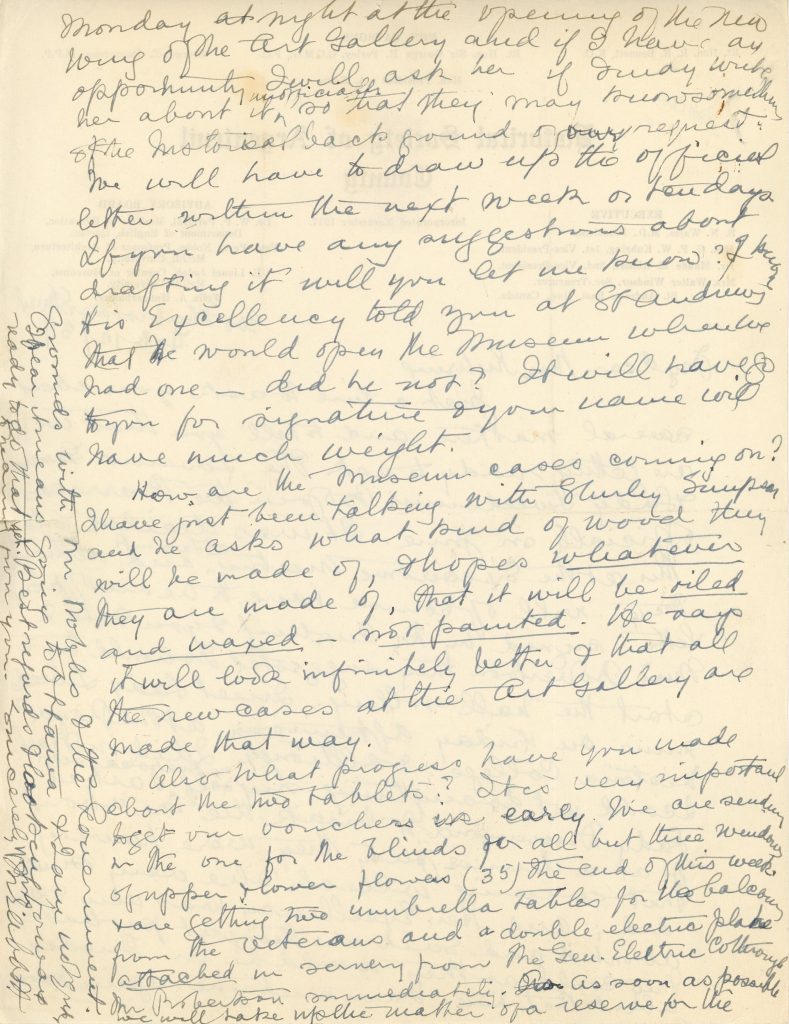 Monday at night at the opening of the new
wing of the Art Gallery and if I have an
opportunity I will ask her if I may write
her about it unofficially so that they may know something
of the historical background of our request.
We will have to draw up the official
letter within the next week or ten days.
If you have any suggestions about
drafting it will you let me know? I know
His Excellency told you at St Andrews
that he would open the Museum when we
had one — did he not? It will have to go
to you for signature & your name will
have much weight.
How are the Museum cases coming on?
I have just been talking with Shirley Simpson
and he asks what kind of wood they
will be made of, & hopes whatever
they are made of, that it will be oiled
and waxed — not painted. He says
it will look infinitely better & that all
the new cases at the Art Gallery are
made that way.
Also what progress have you made
about the two tablets? It is very important
to get our vouchers in early. We are sending
in the one for the blinds for all but three windows
of upper & lower floors (35) the end of this week
& are getting two umbrella tables for the balcony
from the Veterans and a double electric plate
attached in scenery from the Gen. Electric Co through
Mr Robertson immediately. As soon as possible
we will take up the matter of a reserve for the
Grounds with Mr Nobbs & the Government.
I fear it means going to Ottawa & I am not quite
ready to do that yet. Best regards & looking forward
to hearing from you. Sincerely